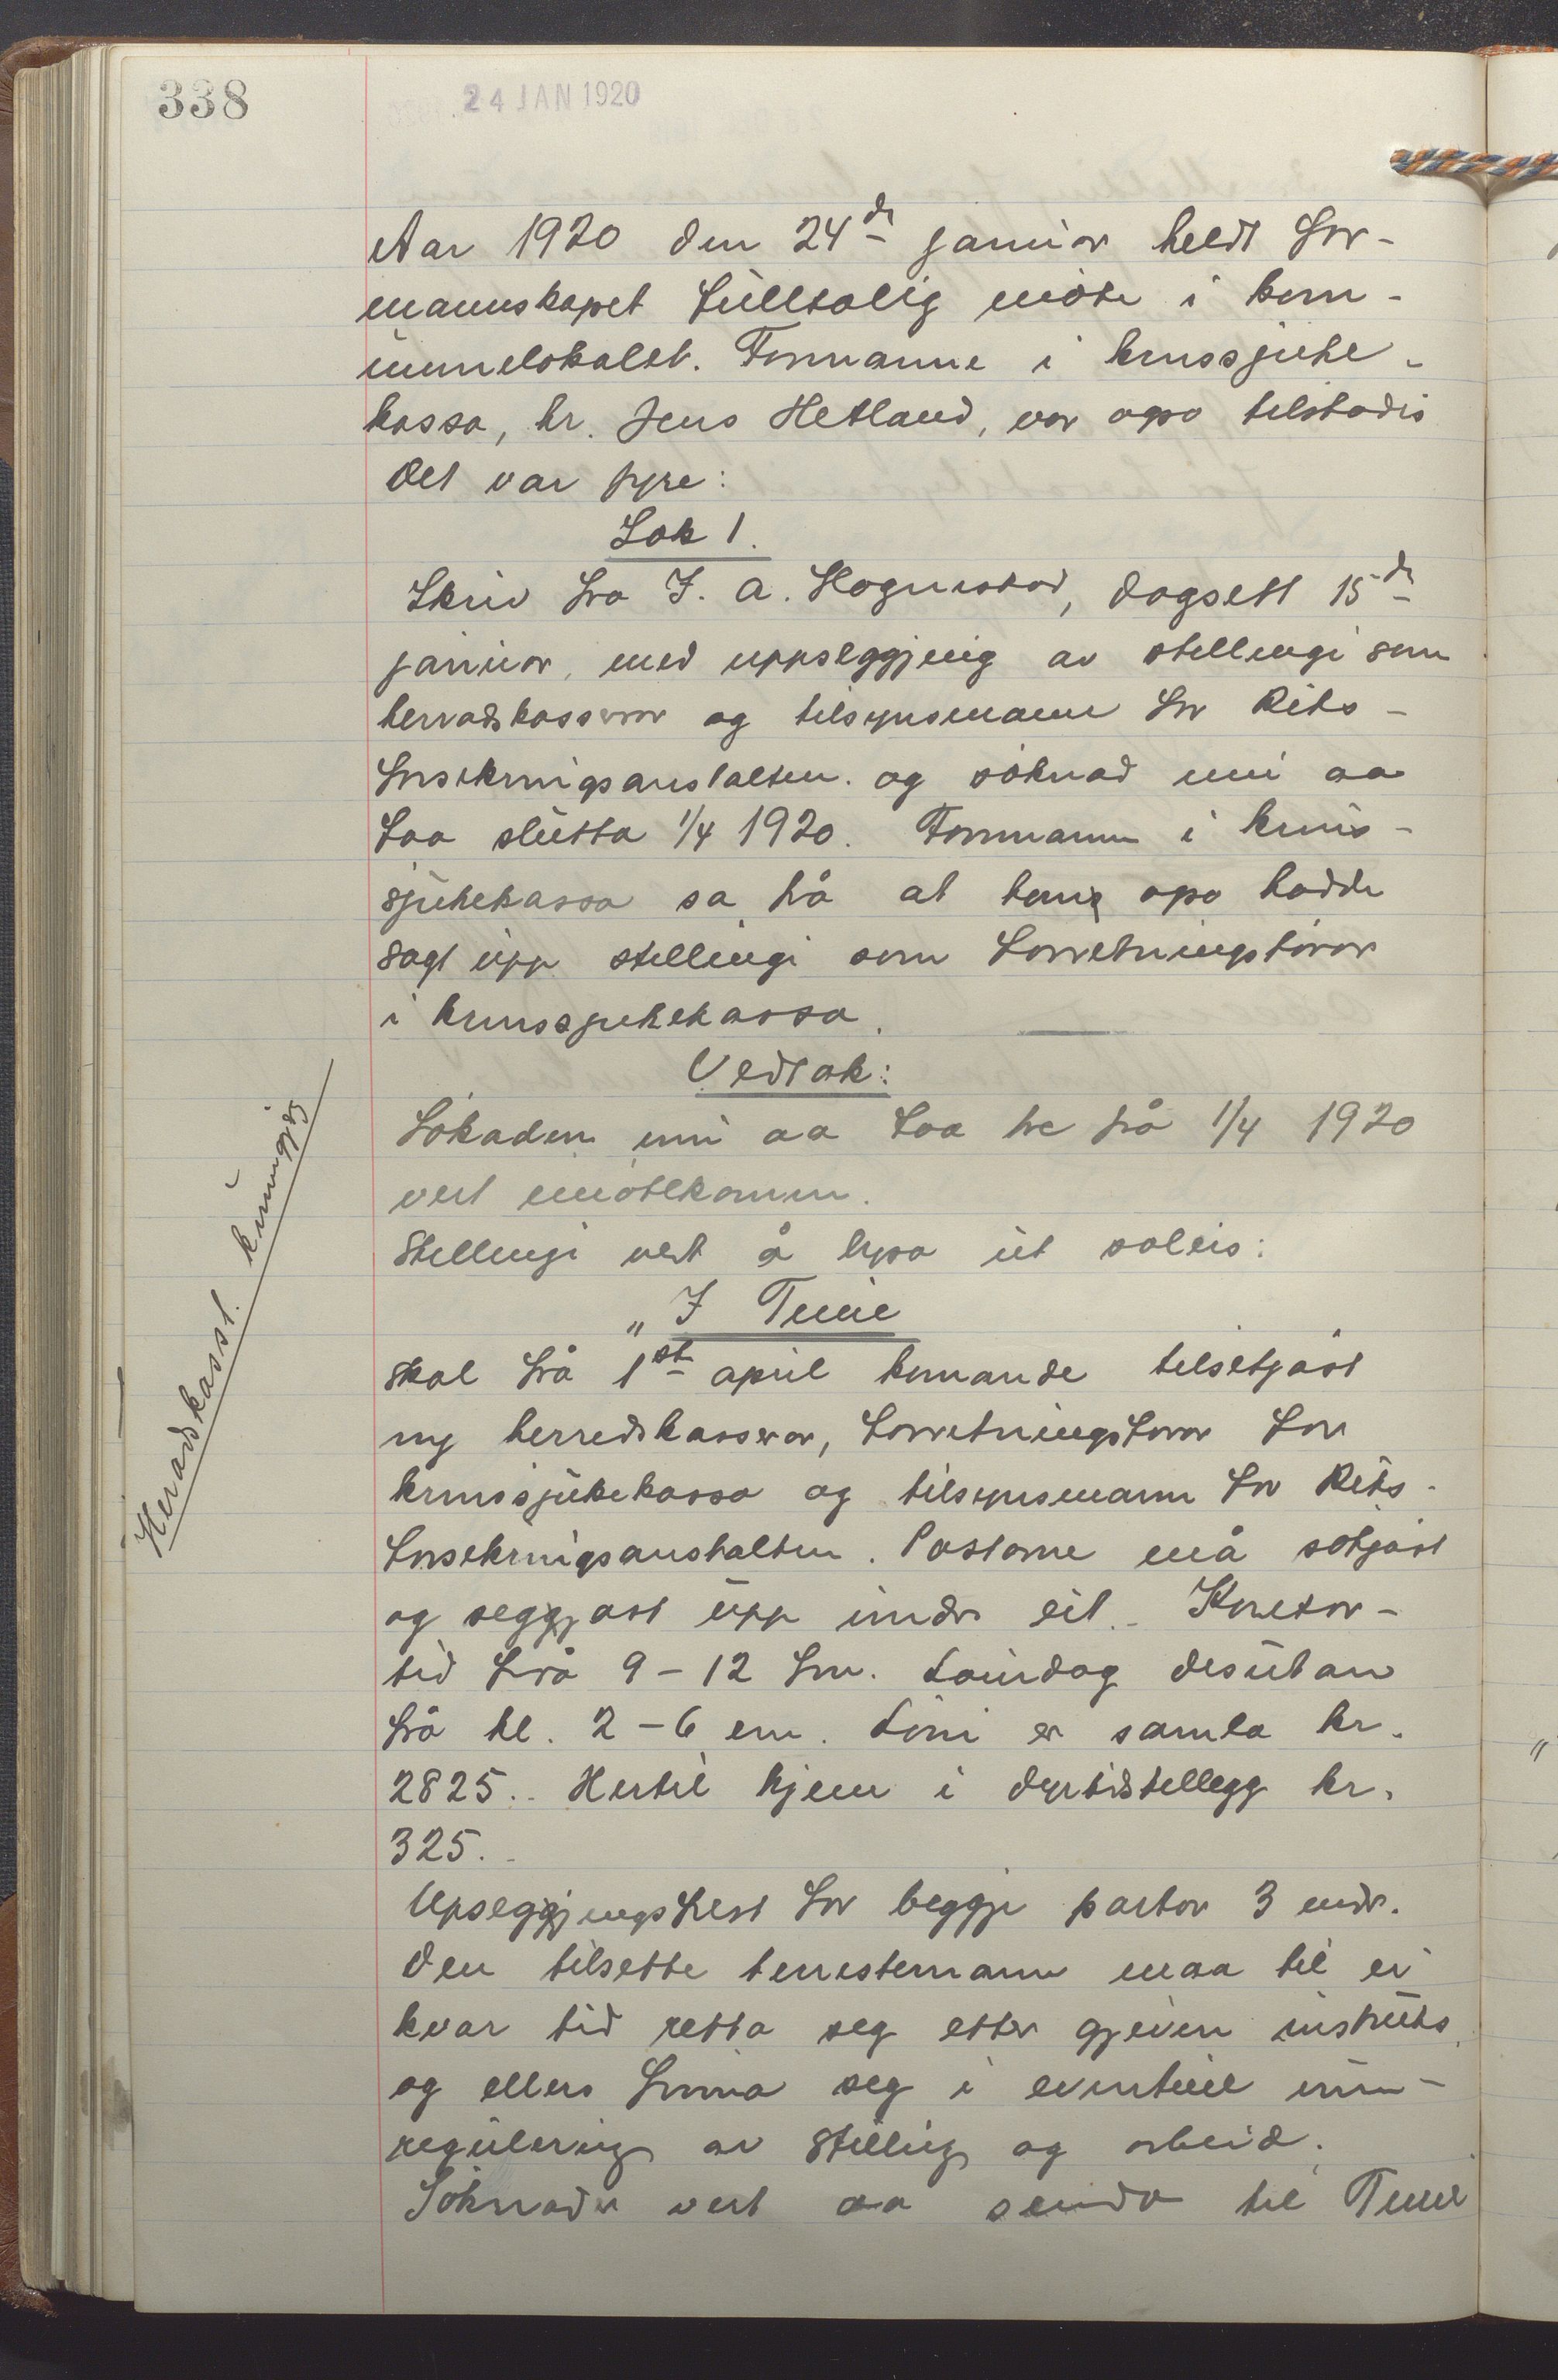 338
24 JAN 1920
Aar 1920 den 24de januar heldt for-
mannskapet fulltalig møte i kom-
munelokalet. Formanne i krinssjuke-
kassa, hr. Jens Hetland, var ogso tilstades
Det var fyre:
Sak 1.
Skriv fra J. A. Hognestad, dagsett 15de
januar, med uppseggjing av stellingi som
herradskasserar og tilsynsmann for Riks-
forsikringsanstalten. og søknad um aa
faa slutta 1/4 1920. Formann i krins-
sjukekassa sa frå at han ogso hadde
sagt upp stellingi som forretningsførar
i krinssjukekassa.
Vedtak:
Søknaden um aa faa fre frå 1/4 1920
vert imøtekomen.
Stellingi vert å lysa ut soleis:
„I Time
skal frå 1st april komande tilsetjast
ny herredskasserar, forretningsførar for
krinssjukekassa og tilsynsmann for Riks-
forsikringsanstalten. Postarne må søkjast
og seggjast upp under eit. Kontor-
tid frå 9-12 fm. Laurdag desutan
frå kl. 2-6 em. Løni er samla kr.
2825.- Hertil kjem i dyrtidstillegg kr.
325.-
Upseggjingsfrest for beggje partar 3 mdr.
Den tilsette tenestemann maa til ei
kvar tid retta seg etter gjeven instruks
og ellers finna seg i eventuel um-
regulering av stelling og arbeid.
Søknader vert aa senda til Time
Heradskasst. kunngjlg